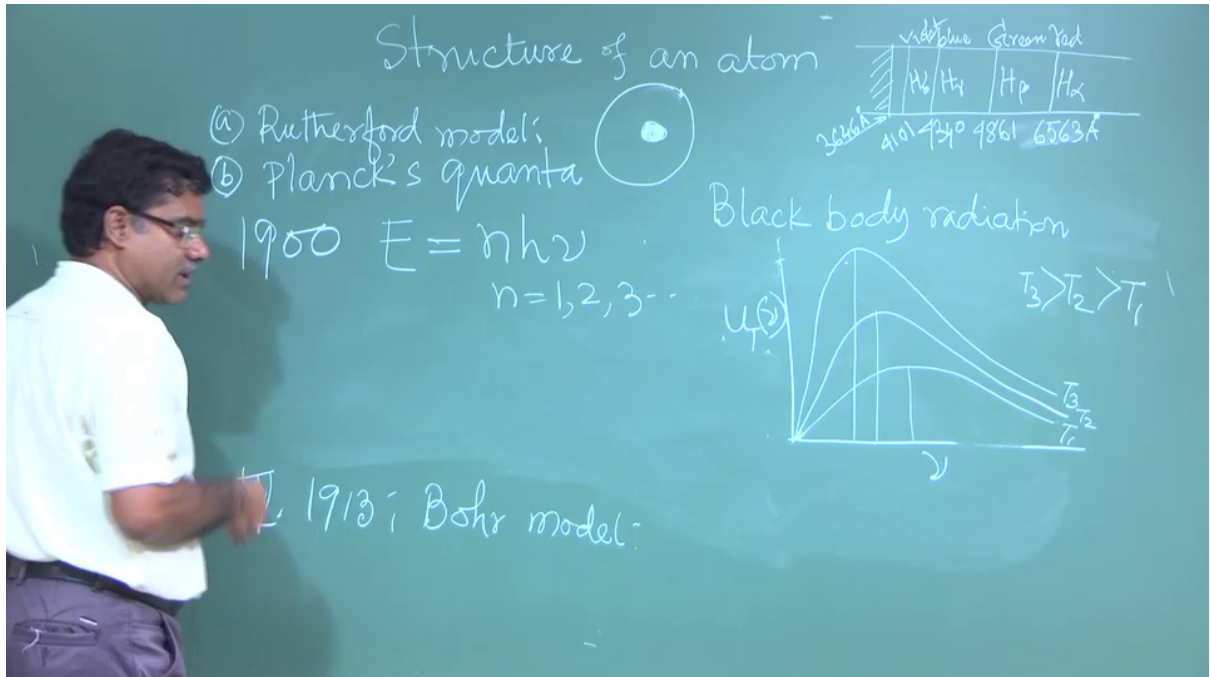 Structure of an atom
violet blue Green red
Hδ Hγ Hβ Hα
3646Å 4101 4340 4861 6563Å
(a) Rutherford model:
(b) Planck's quanta
1900 E = nhν
n = 1, 2, 3 ---
Black body radiation
T₃>T₂>T₁
U_T(ν)
T₃
T₂
T₁
ν
1913; Bohr model: